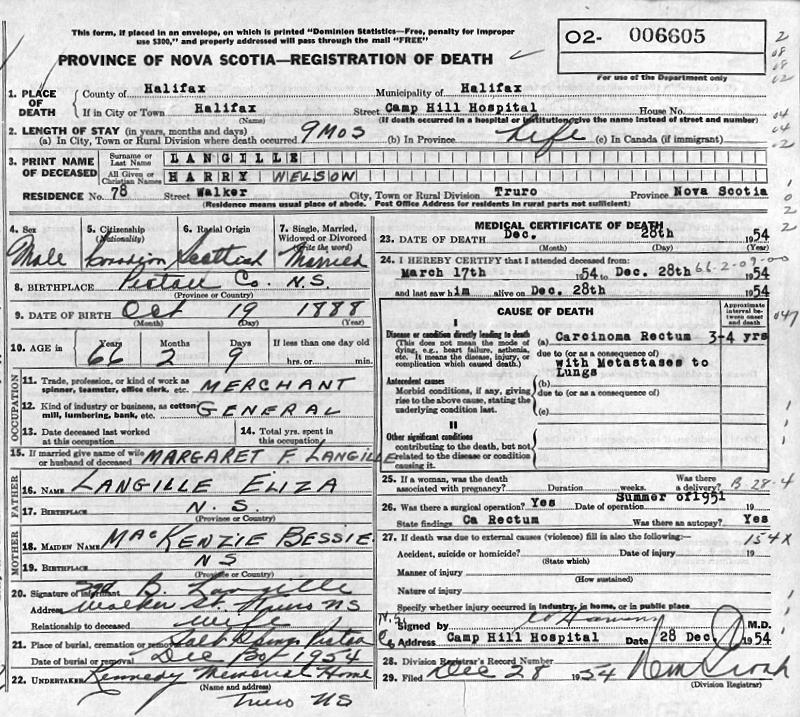 This form, if placed in an envelope, on which is printed "Dominion Statistics—Free, penalty for improper
use $300," and properly addressed will pass through the mail "FREE"
O2- 006605
PROVINCE OF NOVA SCOTIA—REGISTRATION OF DEATH
For use of the Department only
1. PLACE OF DEATH County of Halifax Municipality of Halifax
If in City or Town Halifax Street Camp Hill Hospital House No.
(Name) (If death occurred in a hospital or institution, give the name instead of street and number)
2. LENGTH OF STAY (in years, months and days)
(a) In City, Town or Rural Division where death occurred 9 Mos (b) In Province Life (c) In Canada (if immigrant)
3. PRINT NAME OF DECEASED Surname or Last Name LANGILLE
All Given or Christian Names HARRY NELSON
RESIDENCE No. 78 Street Walker City, Town or Rural Division Truro Province Nova Scotia
(Residence means usual place of abode. Post Office Address for residents in rural parts not sufficient)
4. Sex 5. Citizenship (Nationality) 6. Racial Origin 7. Single, Married, Widowed or Divorced (Write the word)
Male Canadian Scottish Married
8. BIRTHPLACE Pictou Co. N.S.
(Province or Country)
9. DATE OF BIRTH Oct 19 1888
(Month) (Day) (Year)
10. AGE in Years Months Days If less than one day old
66 2 9 hrs. or min.
OCCUPATION
11. Trade, profession, or kind of work as spinner, teamster, office clerk, etc. MERCHANT
12. Kind of industry or business, as cotton mill, lumbering, bank, etc. GENERAL
13. Date deceased last worked at this occupation 14. Total yrs. spent in this occupation
15. If married give name of wife or husband of deceased MARGARET F. LANGILLE
FATHER
16. NAME LANGILLE ELIZA
17. BIRTHPLACE N. S.
(Province or Country)
MOTHER
18. MAIDEN NAME MACKENZIE BESSIE
19. BIRTHPLACE NS
(Province or Country)
20. Signature of informant B. Langille
Address Walker St. Truro NS
Relationship to deceased wife
21. Place of burial, cremation or removal Salt Springs Pictou
Date of burial or removal Dec 30 1954
22. UNDERTAKER Kennedy Memorial Home
(Name and address)
Truro NS
MEDICAL CERTIFICATE OF DEATH
23. DATE OF DEATH Dec. 28th 1954
(Month) (Day) (Year)
24. I HEREBY CERTIFY that I attended deceased from:
March 17th 1954 to Dec. 28th 1954
66-2-09-00
and last saw him alive on Dec. 28th 1954
CAUSE OF DEATH
Approximate interval between onset and death
047
I
Disease or condition directly leading to death (a) Carcinoma Rectum 3-4 yrs
(This does not mean the mode of dying, e.g., heart failure, asthenia, etc. It means the disease, injury, or complication which caused death.)
due to (or as a consequence of)
with Metastases to
Lungs
Antecedent causes (b)
Morbid conditions, if any, giving rise to the above cause, stating the underlying condition last.
due to (or as a consequence of)
(c)
II
Other significant conditions
contributing to the death, but not related to the disease or condition causing it.
25. If a woman, was the death associated with pregnancy? Duration weeks. Was there a delivery?
B-28-4
26. Was there a surgical operation? Yes Date of operation Summer of 1951 19
State findings Ca Rectum Was there an autopsy? Yes
27. If death was due to external causes (violence) fill in also the following:—
154X
Accident, suicide or homicide? Date of injury 19
(State which)
Manner of injury
(How sustained)
Nature of injury
Specify whether injury occurred in industry, in home, or in public place
Signed by M.D.
Address Camp Hill Hospital Date 28 Dec. 1954
28. Division Registrar's Record Number
29. Filed Dec 28 1954
(Division Registrar)